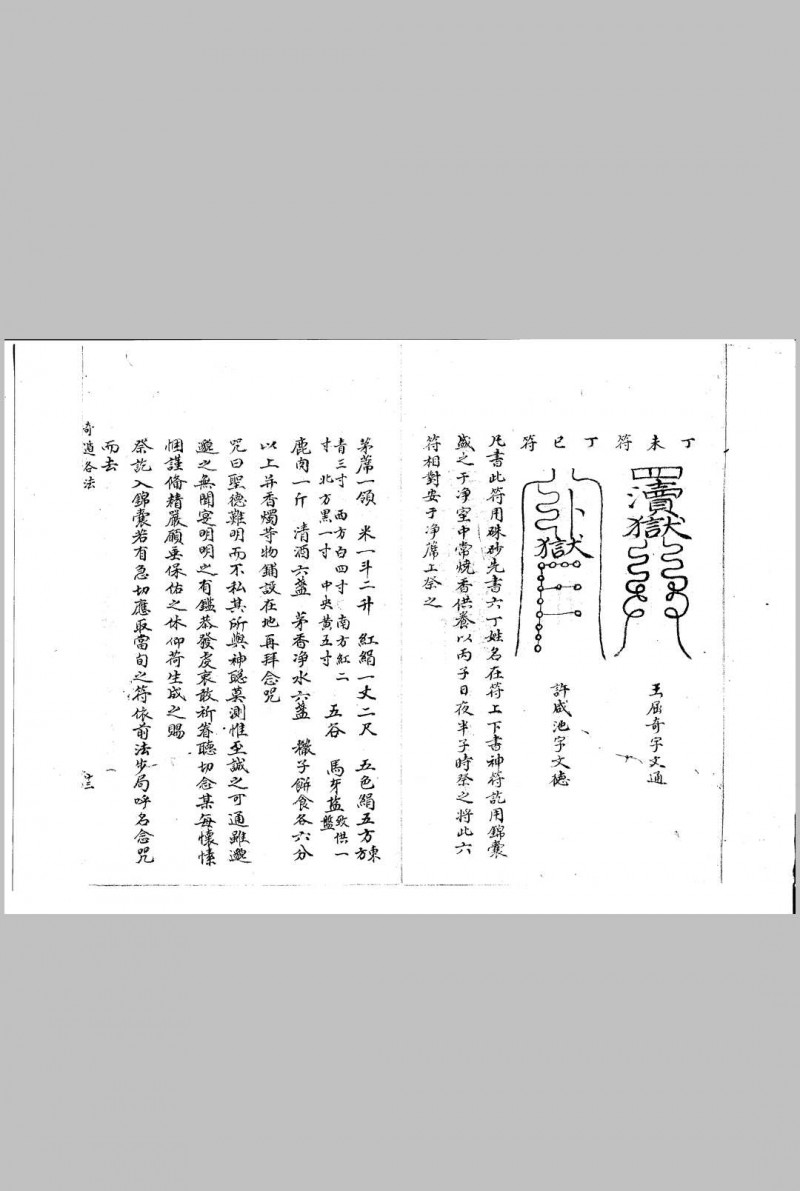 丁未符
四瀆獄
王屈奇字文通
丁巳符
獄
許咸池字文德
凡書此符用硃砂先書六丁姓名在符上下書神符訖用錦囊
盛之于凈室中常燒香供養以丙子日夜半子時祭之將此六
符相對安于凈席上祭之
茅席一領 米一斗二升 紅絹一丈二尺 五色絹五方東方
青三寸 西方白四寸 南方紅二
寸 北方黑一寸 中央黄五寸 五谷 馬牙盐致供一盤
鹿肉一斤 清酒六盞 茅香凈水六盞 糤子餅食各六分
以上并香燭等物鋪設在地再拜念咒
咒曰聖德難明而不私其所與神聰莫測惟至誠之可通雖邈
邈之無聞寔明明之有鑑恭發虔衷敢祈眷聽切念某每懷愫
悃謹備精嚴願垂保佑之休仰荷生成之賜
祭訖入錦囊若有急切應取當旬之符依前法步局呼名念咒
而去
奇遁各法
十三